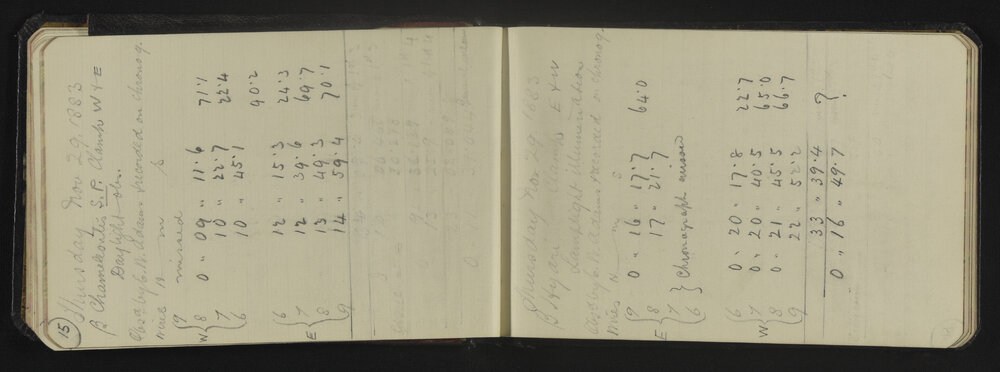 15
Thursday Nov 29. 1883
β Chamæleontis S.P. Clamp W & E
Daylight obn.
Obsd by C.W. Adams recorded on chronog.
Wire h m s
W 9 missed
8 0 " 09 " 11.6 71.1
7 10 " 22.7 22.4
6 10 " 45.1 90.2
E 6 12 " 15.3 24.3
7 12 " 39.6 69.7
8 13 " 49.3 70.1
9 14 " 59.4
Thursday Nov 29 1883
β Hydri Clamp E & W
Lamplight illumination
Obsd by C.W. Adams recorded on chronog.
Wires h m s
E 9 0 " 16 " 17.7 64.0
8 17 " 21.7
7 } Chronograph missed
6
W 6 0. 20 " 17.8 22.7
7 0. 20 " 40.5 65.0
8 21 " 45.5 66.7
9 22 " 52.2
33 " 39.4 ?
0 " 16 " 49.7